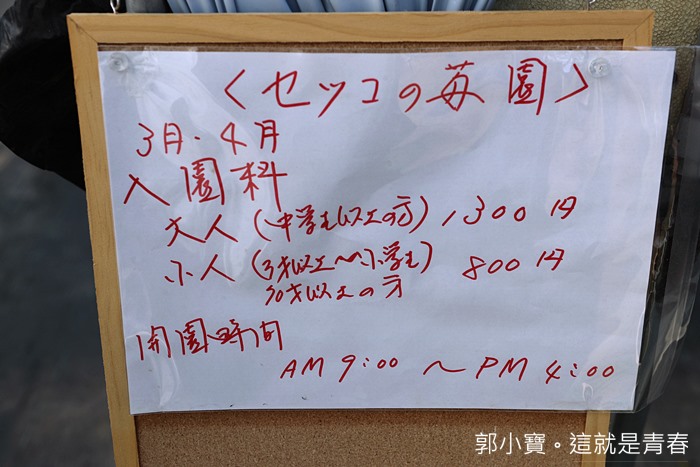 〈セツコの苺園〉
3月・4月
入園料
大人(中学生以上の方) 1300円
小人(3才以上〜小学生) 800円
70才以上の方
開園時間
AM 9:00 〜 PM 4:00
郭小寶。這就是青春